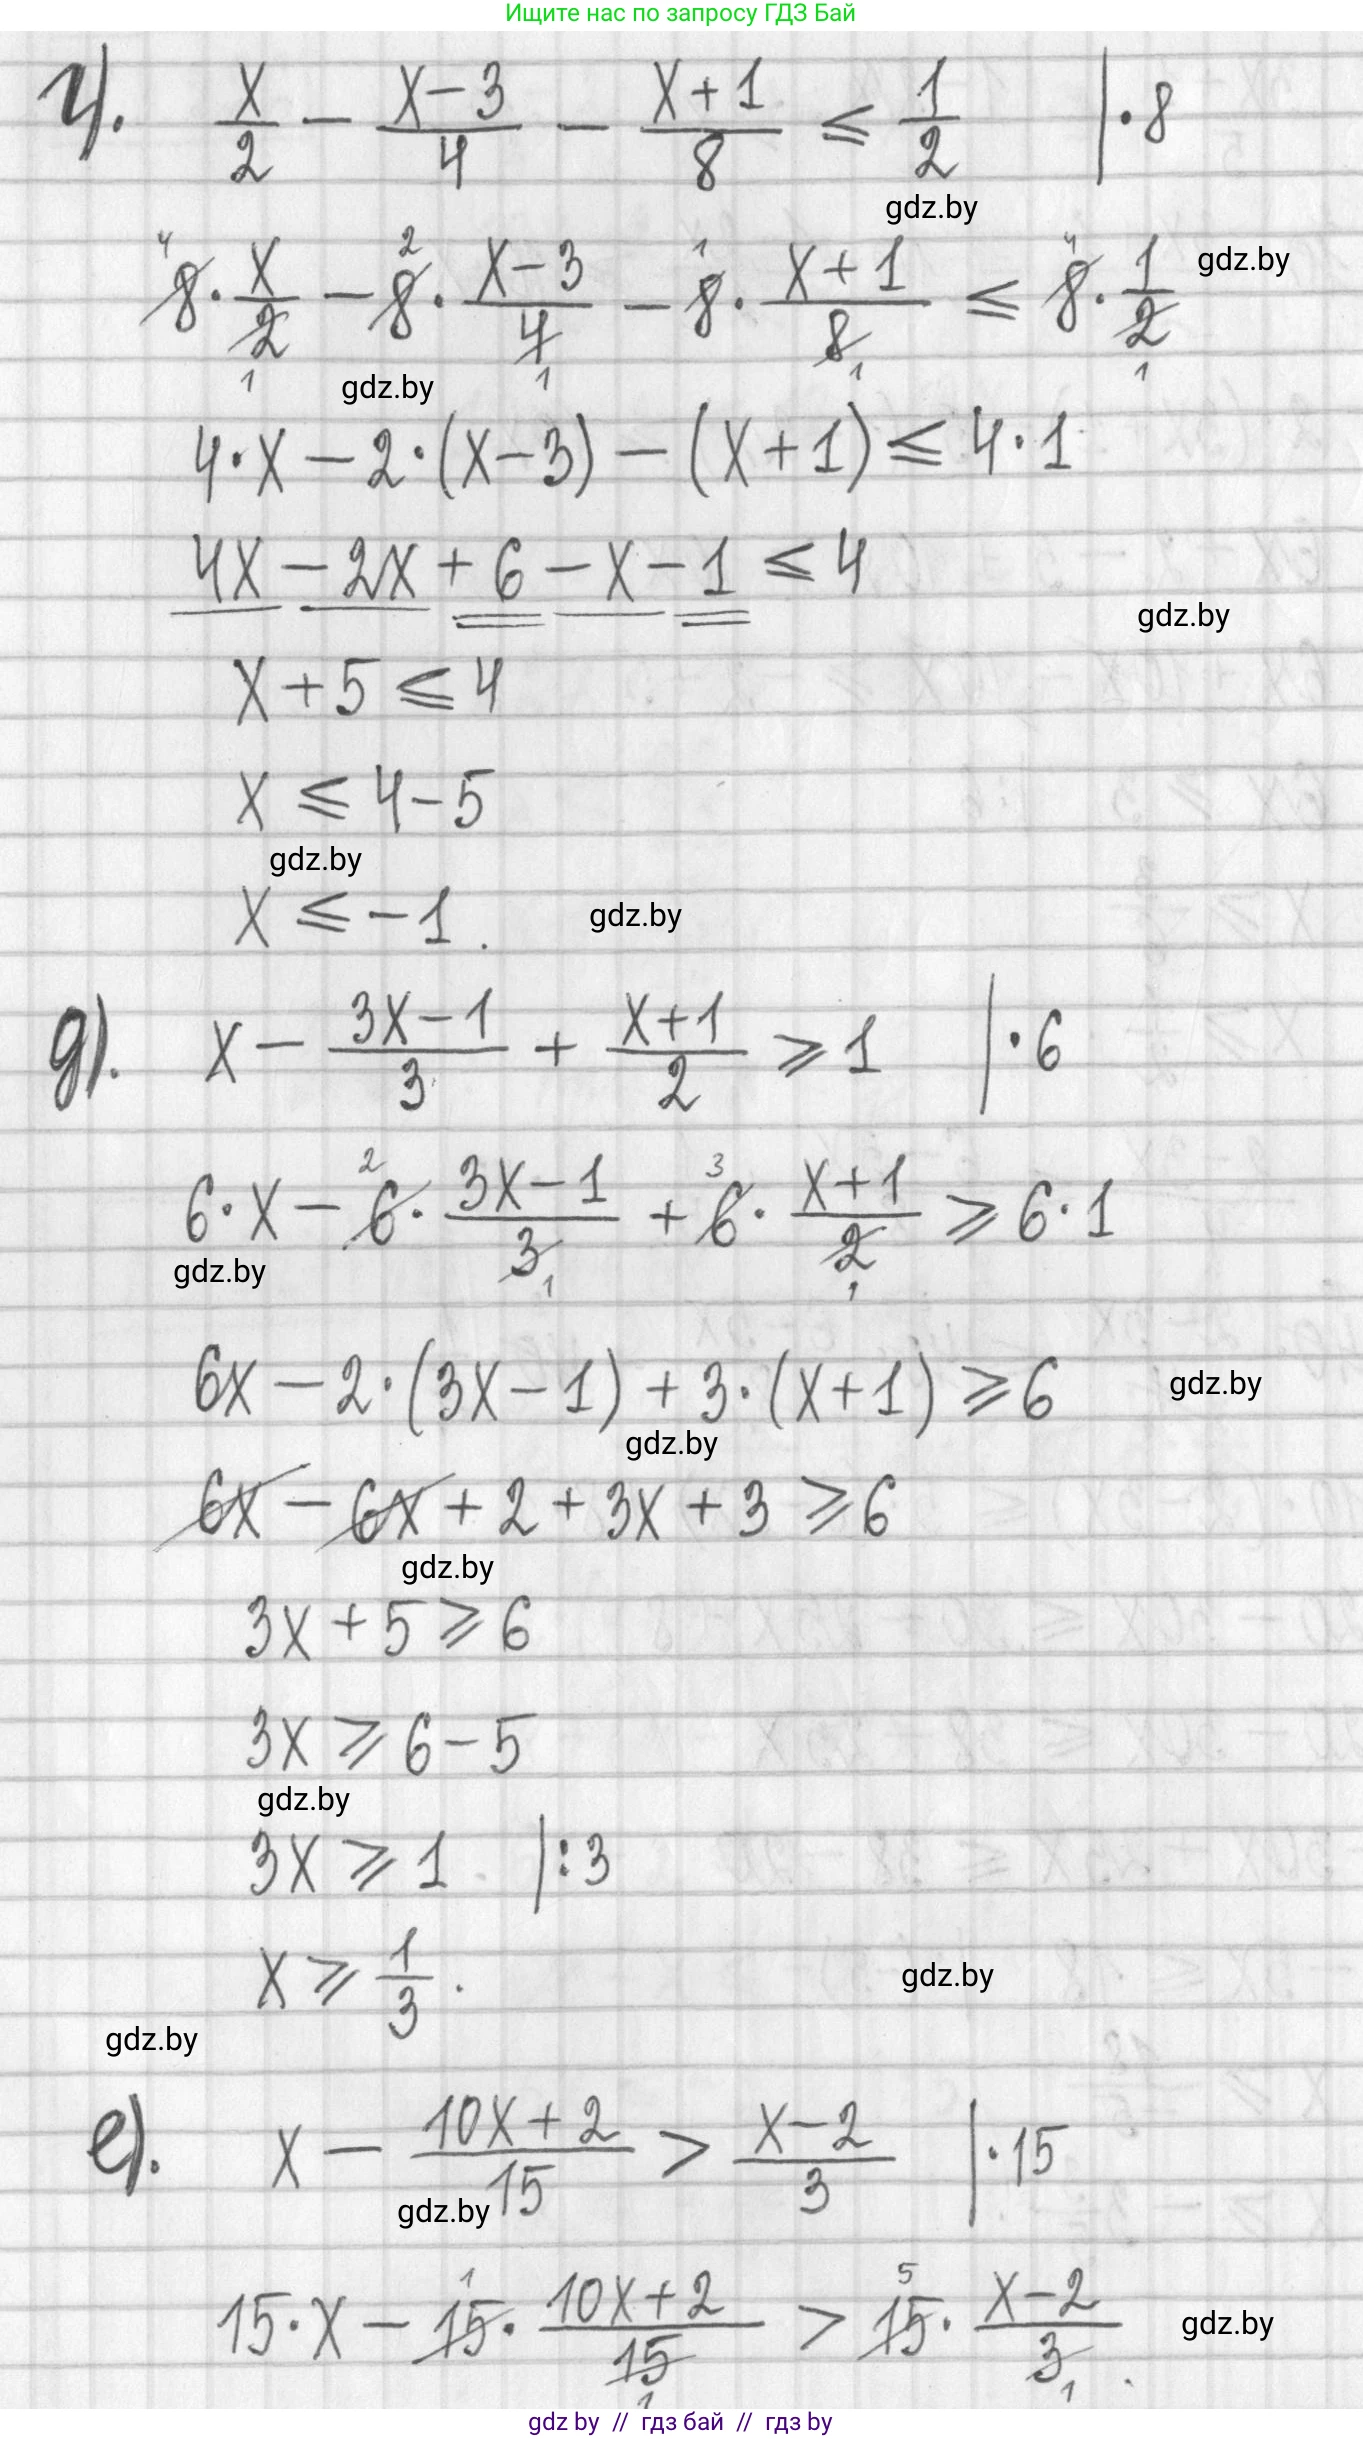 Ищите нас по запросу ГДЗ Бай
г). x/2 - (x-3)/4 - (x+1)/8 ⩽ 1/2 | · 8
gdz.by
4 2 1 4
8 · x/2 - 8 · (x-3)/4 - 8 · (x+1)/8 ⩽ 8 · 1/2 gdz.by
1 1 1 1
gdz.by
4 · x - 2 · (x-3) - (x+1) ⩽ 4 · 1
4x - 2x + 6 - x - 1 ⩽ 4
gdz.by
x + 5 ⩽ 4
x ⩽ 4 - 5
gdz.by
x ⩽ -1. gdz.by
д). x - (3x-1)/3 + (x+1)/2 ⩾ 1 | · 6
2 3
6 · x - 6 · (3x-1)/3 + 6 · (x+1)/2 ⩾ 6 · 1
1 1
gdz.by
6x - 2 · (3x-1) + 3 · (x+1) ⩾ 6 gdz.by
gdz.by
6x - 6x + 2 + 3x + 3 ⩾ 6
gdz.by
3x + 5 ⩾ 6
3x ⩾ 6 - 5
gdz.by
3x ⩾ 1 | : 3
x ⩾ 1/3. gdz.by
gdz.by
е). x - (10x+2)/15 > (x-2)/3 | · 15
gdz.by
1 5
15 · x - 15 · (10x+2)/15 > 15 · (x-2)/3. gdz.by
1 1
gdz by // гдз бай // гдз by